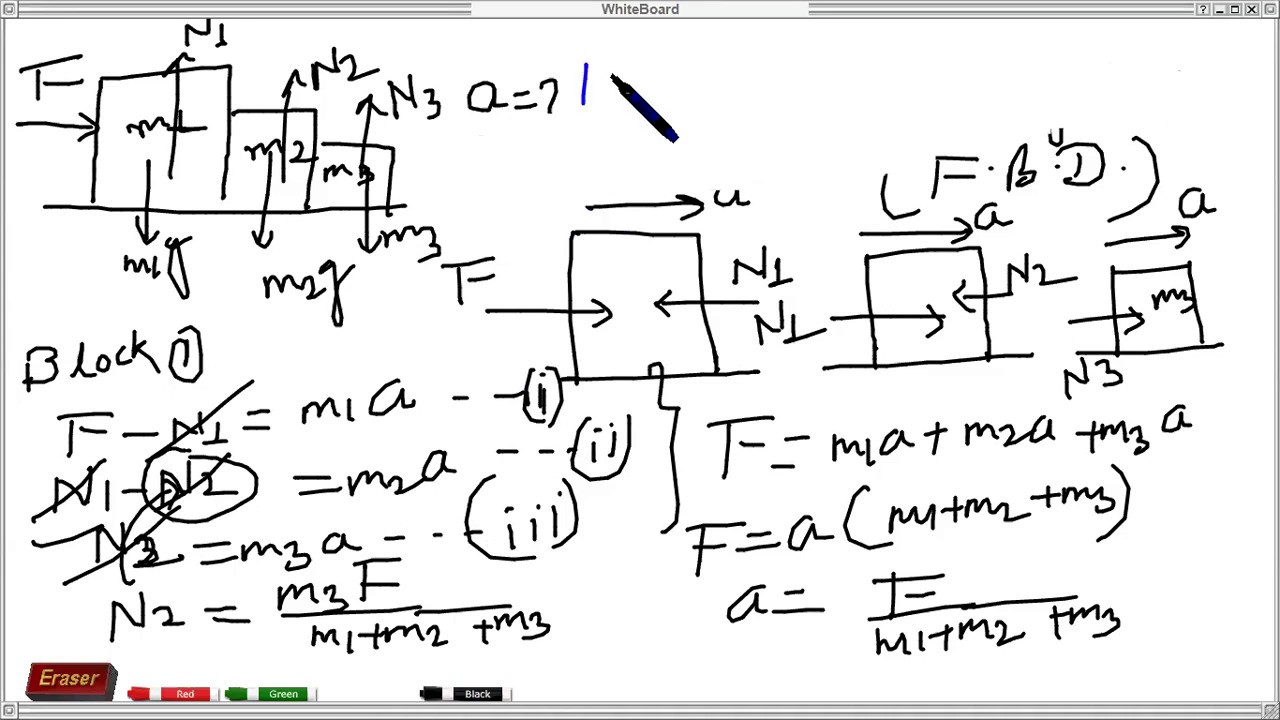 WhiteBoard
N1
F
N2
N3 a=?
m1
m2
m3
m1g
m2g
m3
(F.B.D.)
a
a
a
F
N1
N1
N2
m3
N3
Block ①
F - N1 = m1a - - (i)
N1 - N2 = m2a - - - (ii)
= m3a - - - (iii)
N2 = m3F / m1+m2+m3
F = m1a + m2a + m3a
F = a (m1+m2+m3)
a = F / m1+m2+m3
Eraser
Red
Green
Black